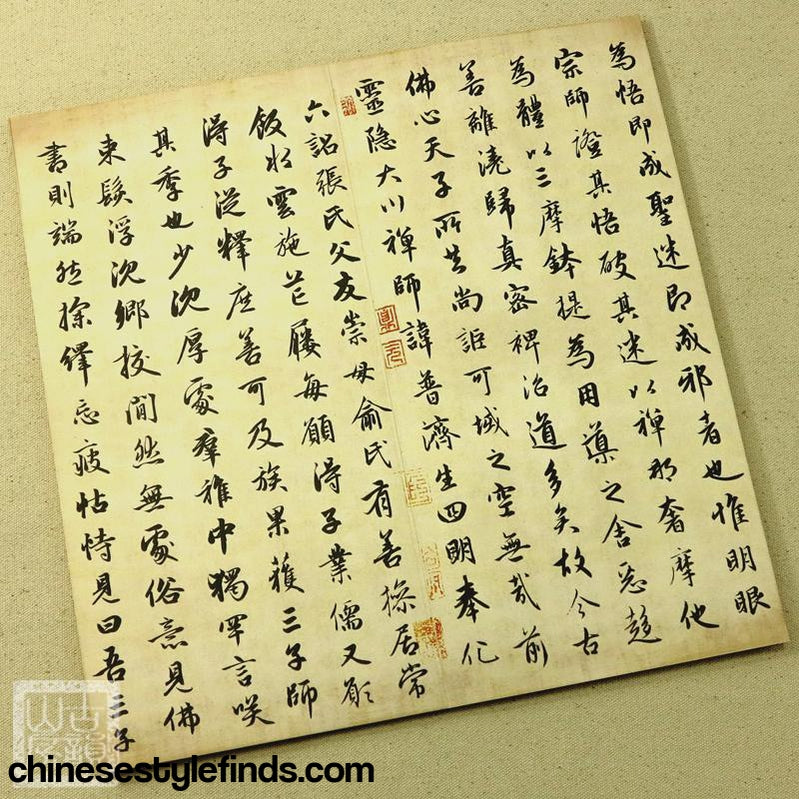 為悟即成聖迷即成邪者也惟明眼
宗師證其悟破其迷以禪那奢摩他
為體以三摩鉢提為用導之舍惡趍
善離澆歸真密裨治道多矣故今古
佛心天子所共尚詎可域之空無哉前
靈隐大川禅師諱普濟生四明奉化
六詔張氏父友崇母俞氏有善操居常
飯水雲施芒屨每願得子業儒又願
得子從釋庶善可及族果獲三子師
其季也少沉厚處羣稚中獨罕言咲
束髮浮沉鄉校閒然無處俗意見佛
書則端然探繹忘疲怙恃見曰吾三子
chinesestylefinds.com